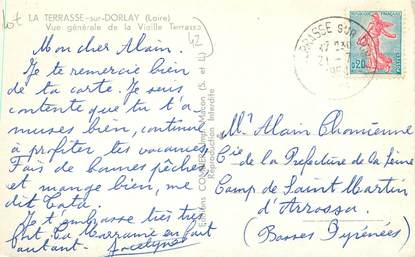 Lot
LA TERRASSE-sur-DORLAY (Loire)
Vue générale de la Vieille Terrasse
42
Mon cher Alain.
Je te remercie bien
de ta carte. Je suis
contente que tu t'a
muses bien, continue
à profiter tes vacances
Fais de bonnes pêches
et mange bien, me
dit Tata.
Je t'embrasse très très
fort. La marraine en fait
autant - Jocelyne
Editions COMBIER Imp. Macon (S. et L.)
Reproduction Interdite
TERRASSE SUR
17 H 30
21 - 7
0,20
POSTES
Mr Alain Chomienne
Cie de la Prefecture de la Seine
Camp de Saint Martin
d'Arrossa.
(Basses Pyrénées)